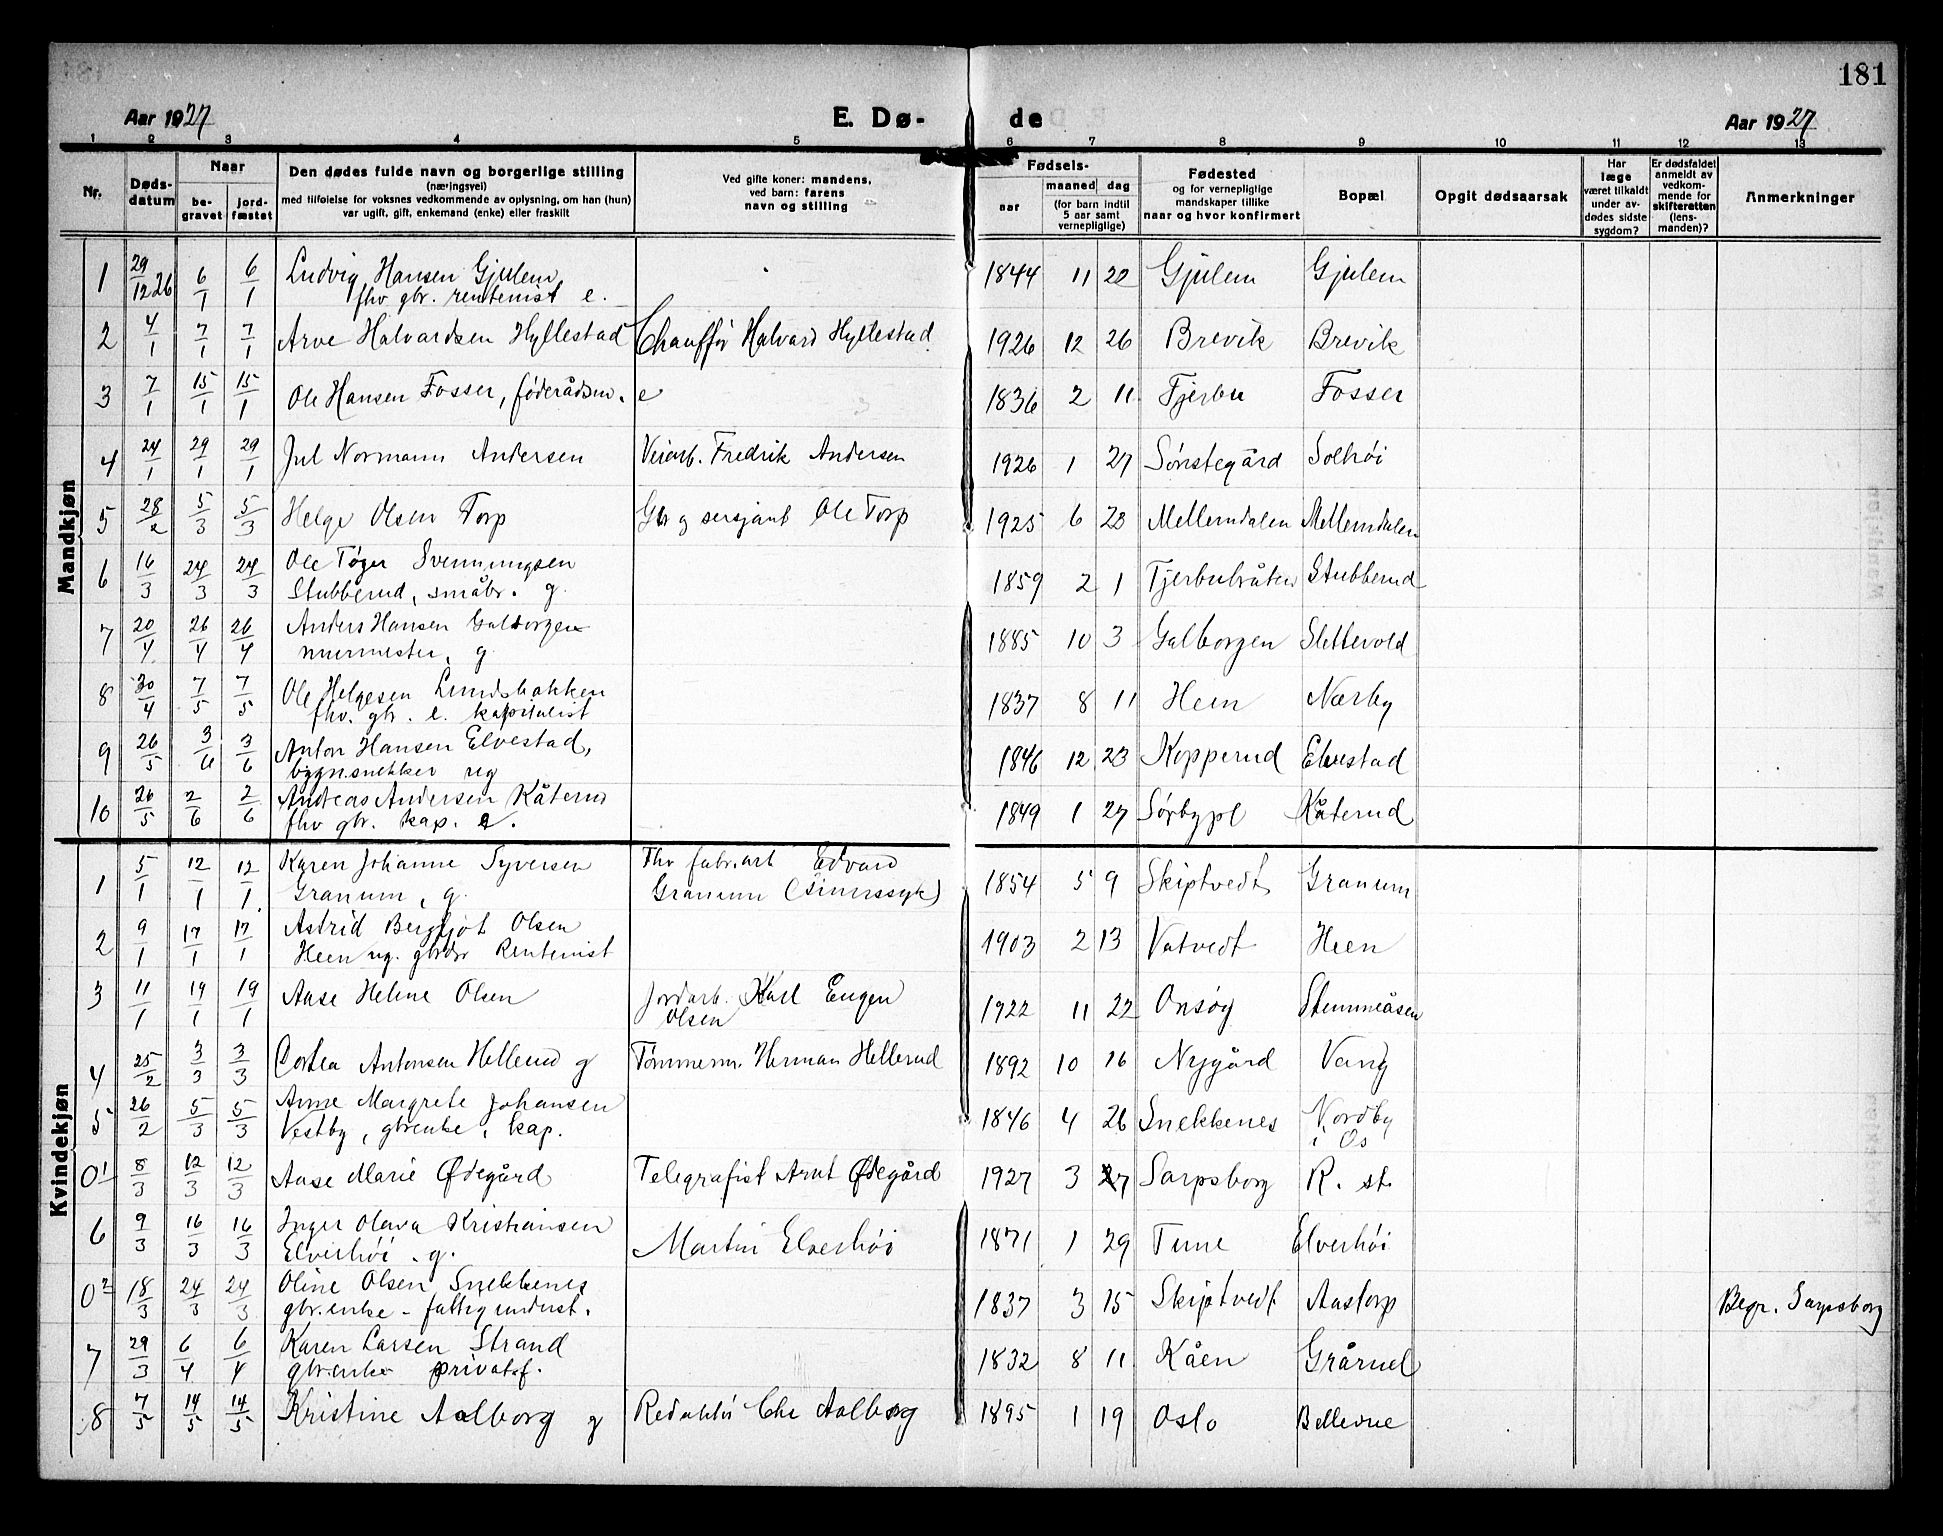 181
Aar 1927 E. Dø- de Aar 1927
1 2 3 4 5 6 7 8 9 10 11 12 13
Nr. Døds-datum Naar be-gravet jord-fæstet Den dødes fulde navn og borgerlige stilling (næringsvei) med tilføielse for voksnes vedkommende av oplysning, om han (hun) var ugift, gift, enkemand (enke) eller fraskilt Ved gifte koner: mandens, ved barn: farens navn og stilling Fødsels- aar maaned dag (for barn indtil 5 aar samt vernepligtige) Fødested og for vernepligtige mandskaper tillike naar og hvor konfirmert Bopæl Opgit dødsaarsak Har læge været tilkaldt under av-dødes sidste sygdom? Er dødsfaldet anmeldt av vedkom-mende for skifteretten (lens-manden)? Anmerkninger
Mandkjøn
1 29/12 26 6/1 6/1 Ludvig Hansen Gjulem 1844 11 20 Gjulem Gjulem
fhv gbr. rentenist e.
2 4/1 7/1 7/1 Arve Halvardsen Hyllestad Chauffør Halvard Hyllestad 1926 12 26 Brevik Brevik
3 7/1 15/1 15/1 Ole Hansen Fosser, føderådsm. e 1836 2 11 Tjerbu Fosser
4 24/1 29/1 29/1 Jul Normann Andersen Veiarb. Fredrik Andersen 1926 1 27 Sønstegård Solhøi
5 28/2 5/3 5/3 Helge Olsen Torp Gbr og sersjant Ole Torp 1925 6 23 Mellemdalen Mellemdalen
6 16/3 24/3 24/3 Ole Tøger Svenningsen
Stubberud, småbr. g. 1859 2 1 Tjerbubråten Stubberud
7 20/4 26/4 26/4 Anders Hansen Galborgen
murmester, g. 1885 10 3 Galborgen Slettevold
8 30/4 7/5 7/5 Ole Helgesen Lundsbakken
fhv. gbr. e. kapitalist 1837 8 11 Heen Nærby
9 26/5 3/6 3/6 Anton Hansen Elvestad,
bygn.snekker ug 1846 12 23 Kopperud Elvestad
10 26/5 2/6 2/6 Andreas Andersen Kåterud
fhv gbr. kap. e. 1849 1 27 Sørbypl Kåterud
Kvindekjøn
1 5/1 12/1 12/1 Karen Johanne Syversen Fhv fabr.arb Edvard
Granum, g. Granum (sinnssyk) 1854 5 9 Skiptvedt Granum
2 9/1 17/1 17/1 Astrid Bergljot Olsen
Heen ug. gbrdr Rentenist 1903 2 13 Vatvedt Heen
3 11/1 19/1 19/1 Aase Helene Olsen Jordarb. Karl Eugen
Olsen 1922 11 22 Onsøy Stemmeåsen
4 25/2 3/3 3/3 Antonsen Hellerud g Tømmerm. Herman Hellerud 1892 10 16 Nygård Vang
5 26/2 5/3 5/3 Anne Margrete Johansen
Vestby, gbrenke, kap. 1846 4 26 Snekkenes Nordby
i Os
0¹ 8/3 12/3 12/3 Aase Marie Ødegård Telegrafist Arnt Ødegård 1927 3 7 Sarpsborg R. st.
6 9/3 16/3 16/3 Inger Olava Kristiansen
Elverhøi. g. Martin Elverhøi 1871 1 29 Tune Elverhøi
0² 18/3 24/3 24/3 Oline Olsen Snekkenes
gbr.enke - fattigunderst. 1837 3 15 Skiptvedt Aastorp Begr. Sarpsborg
7 29/3 6/4 6/4 Karen Larsen Strand
gbrenke privatf. 1832 8 11 Kåen Grårud
8 7/5 14/5 14/5 Kristine Aalborg g Redaktør Chr Aalborg 1895 1 19 Oslo Bellevue